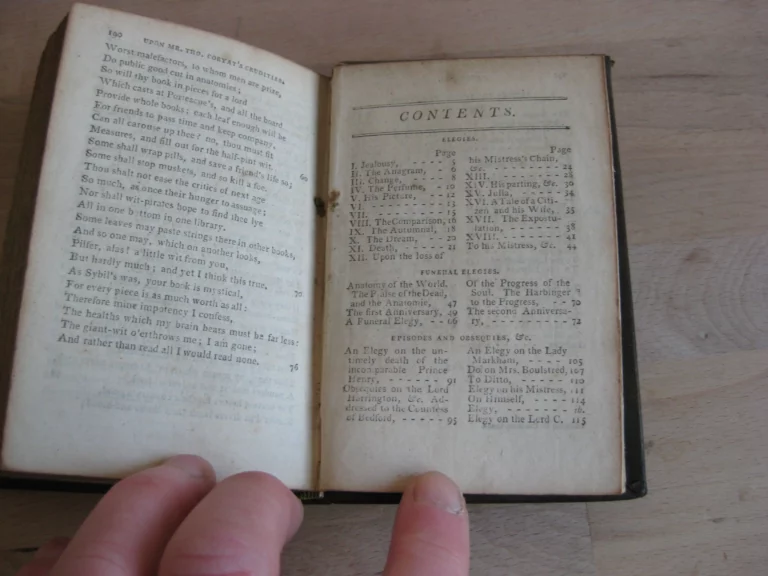 190 UPON MR. THO. CORYAT'S CRUDITIES.
Worst malefactors, to whom men are prize,
Do public good cut in anatomies;
So will thy book in pieces for a lord
Which casts at Portescue's, and all the board
Provide whole books; each leaf enough will be
For friends to pass time and keep company.
Can all carouse up thee? no, thou must fit
Measures, and fill out for the half-pint wit.
Some shall wrap pills, and save a friend's life so; 60
Some shall stop muskets, and so kill a foe.
Thou shalt not ease the critics of next age
So much, as once their hunger to assuage:
Nor shall wit-pirates hope to find thee lye
All in one bottom in one library.
Some leaves may paste strings there in other books,
And so one may, which on another looks,
Pilfer, alas! a little wit from you,
But hardly much; and yet I think this true. 70
As Sybil's was, your book is mystical,
For every piece is as much worth as all:
Therefore mine impotency I confess,
The healths which my brain bears must be far less:
The giant-wit o'erthrows me; I am gone;
And rather than read all I would read none. 76
CONTENTS.
ELEGIES.
Page
I. Jealousy, - - - - 5
II. The Anagram, - 6
III. Change, - - - - 8
IV. The Perfume, - 10
V. His Picture, - - - 12
VI. - - - - - - - 13
VII. - - - - - - - 15
VIII. The Comparison, 16
IX. The Autumnal, 18
X. The Dream, - - 20
XI. Death, - - - - 21
XII. Upon the loss of
Page
his Mistress's Chain,
&c. - - - - - - 22
XIII. - - - - - - 28
XIV. His parting, &c. 30
XV. Julia, - - - - 34
XVI. A Tale of a Citi-
zen and his Wife, 35
XVII. The Expostu-
lation, - - - - - 38
XVIII. - - - - - 41
To his Mistress, &c. 44
FUNERAL ELEGIES.
Anatomy of the World.
The Praise of the Dead,
and the Anatomie, 47
The first Anniversary, 49
A Funeral Elegy, - - 66
Of the Progress of the
Soul. The Harbinger
to the Progress, - - 70
The second Anniversa-
ry, - - - - - - - - 72
EPISODES AND OBSEQUIES, &c.
An Elegy on the un-
timely death of the
incomparable Prince
Henry, - - - - - 91
Obsequies on the Lord
Harrington, &c. Ad-
dressed to the Countess
of Bedford, - - - - - 95
An Elegy on the Lady
Markham, - - - - 105
Do on Mrs. Boulstred, 107
To Ditto, - - - - 110
Elegy on his Mistress, 111
On Himself, - - - - 114
Elegy, - - - - - - - ib.
Elegy on the Lord C. 115